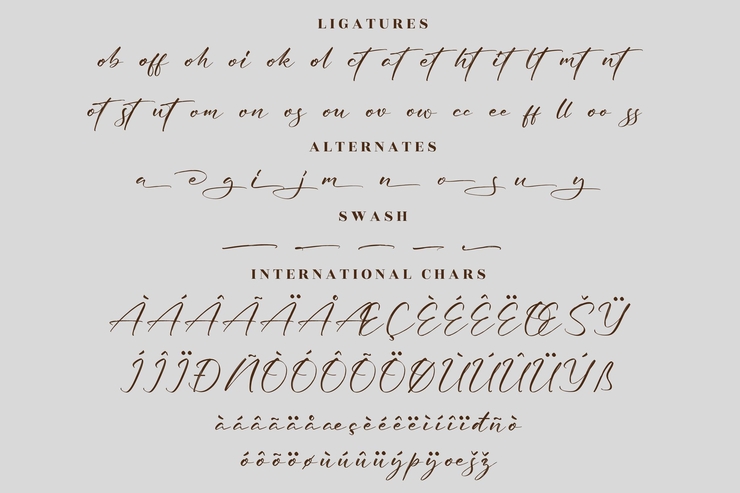 LIGATURES
ob off oh oi ok ol ct at et ht it lt mt nt
ot st ut om on os ou ov ow cc ee ff ll oo ss
ALTERNATES
a e g i j m n o s u y
SWASH
INTERNATIONAL CHARS
ÀÁÂÃÄÅÆÇÈÉÊËŒŠŸ
ÍÎÏÐÑÒÓÔÕÖØÙÚÛÜÝß
àáâãäåæçèéêëìíîïđñò
óôõöøùúûüýþÿœšž